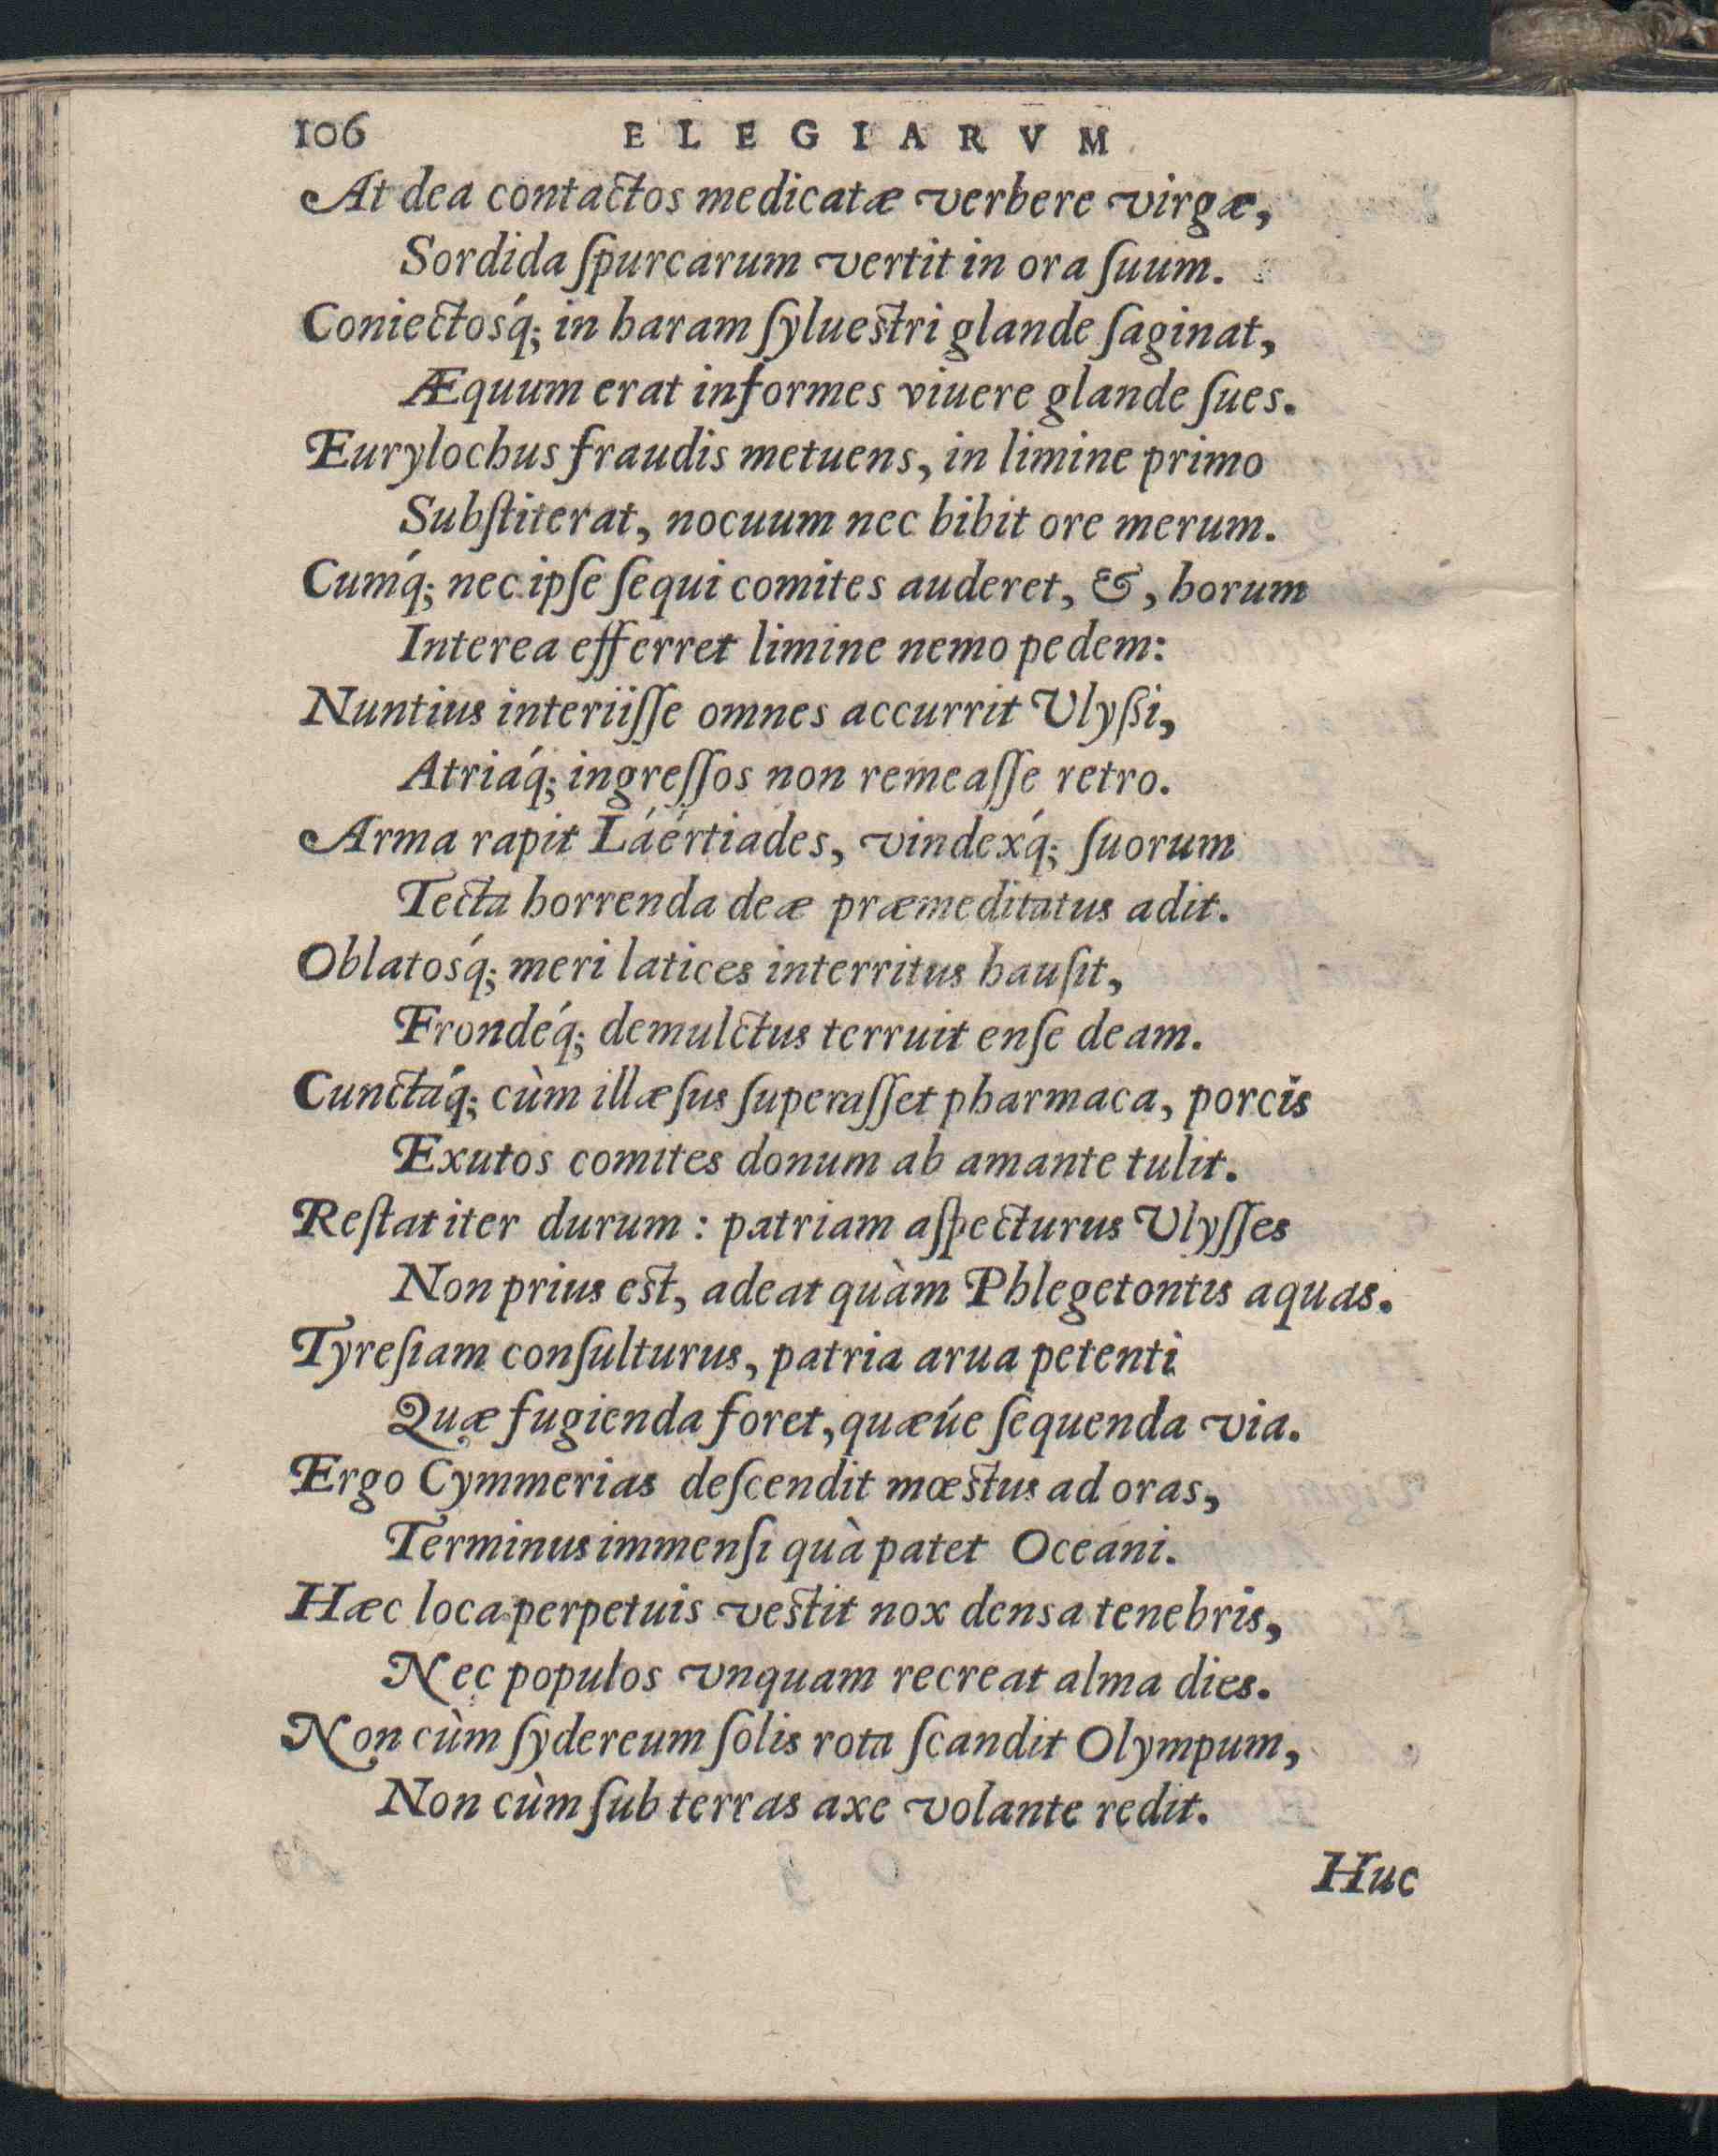 106 ELEGIARVM
At dea contactos medicatæ verbere virgæ,
Sordida ſpurcarum vertit in ora ſuum.
Coniectosq́; in haram ſylueſtri glande ſaginat,
Æquum erat informes viuere glande ſues.
Eurylochus fraudis metuens, in limine primo
Subſtiterat, nocuum nec bibit ore merum.
Cumq́; nec ipſe ſequi comites auderet, &, horum
Interea efferret limine nemo pedem:
Nuntius interiiſſe omnes accurrit Vlyßi,
Atriaq́; ingreſſos non remeaſſe retro.
Arma rapit Láértiades, vindexq́; ſuorum
Tecta horrenda deæ præmeditatus adit.
Oblatosq́; meri latices interritus hauſit,
Frondeq́; demulctus terruit enſe deam.
Cunctaq́; cùm illæſus ſuperaſſet pharmaca, porcis
Exutos comites donum ab amante tulit.
Reſtat iter durum : patriam aſpecturus Vlyſſes
Non prius eſt, adeat quàm Phlegetontis aquas.
Tyreſiam conſulturus, patria arua petenti
Quæ fugienda foret, quæúe ſequenda via.
Ergo Cymmerias deſcendit mœſtus ad oras,
Terminus immenſi quà patet Oceani.
Hæc loca perpetuis veſtit nox densa tenebris,
Nec populos vnquam recreat alma dies.
Non cùm ſydereum ſolis rota ſcandit Olympum,
Non cùm ſub terras axe volante redit.
Huc